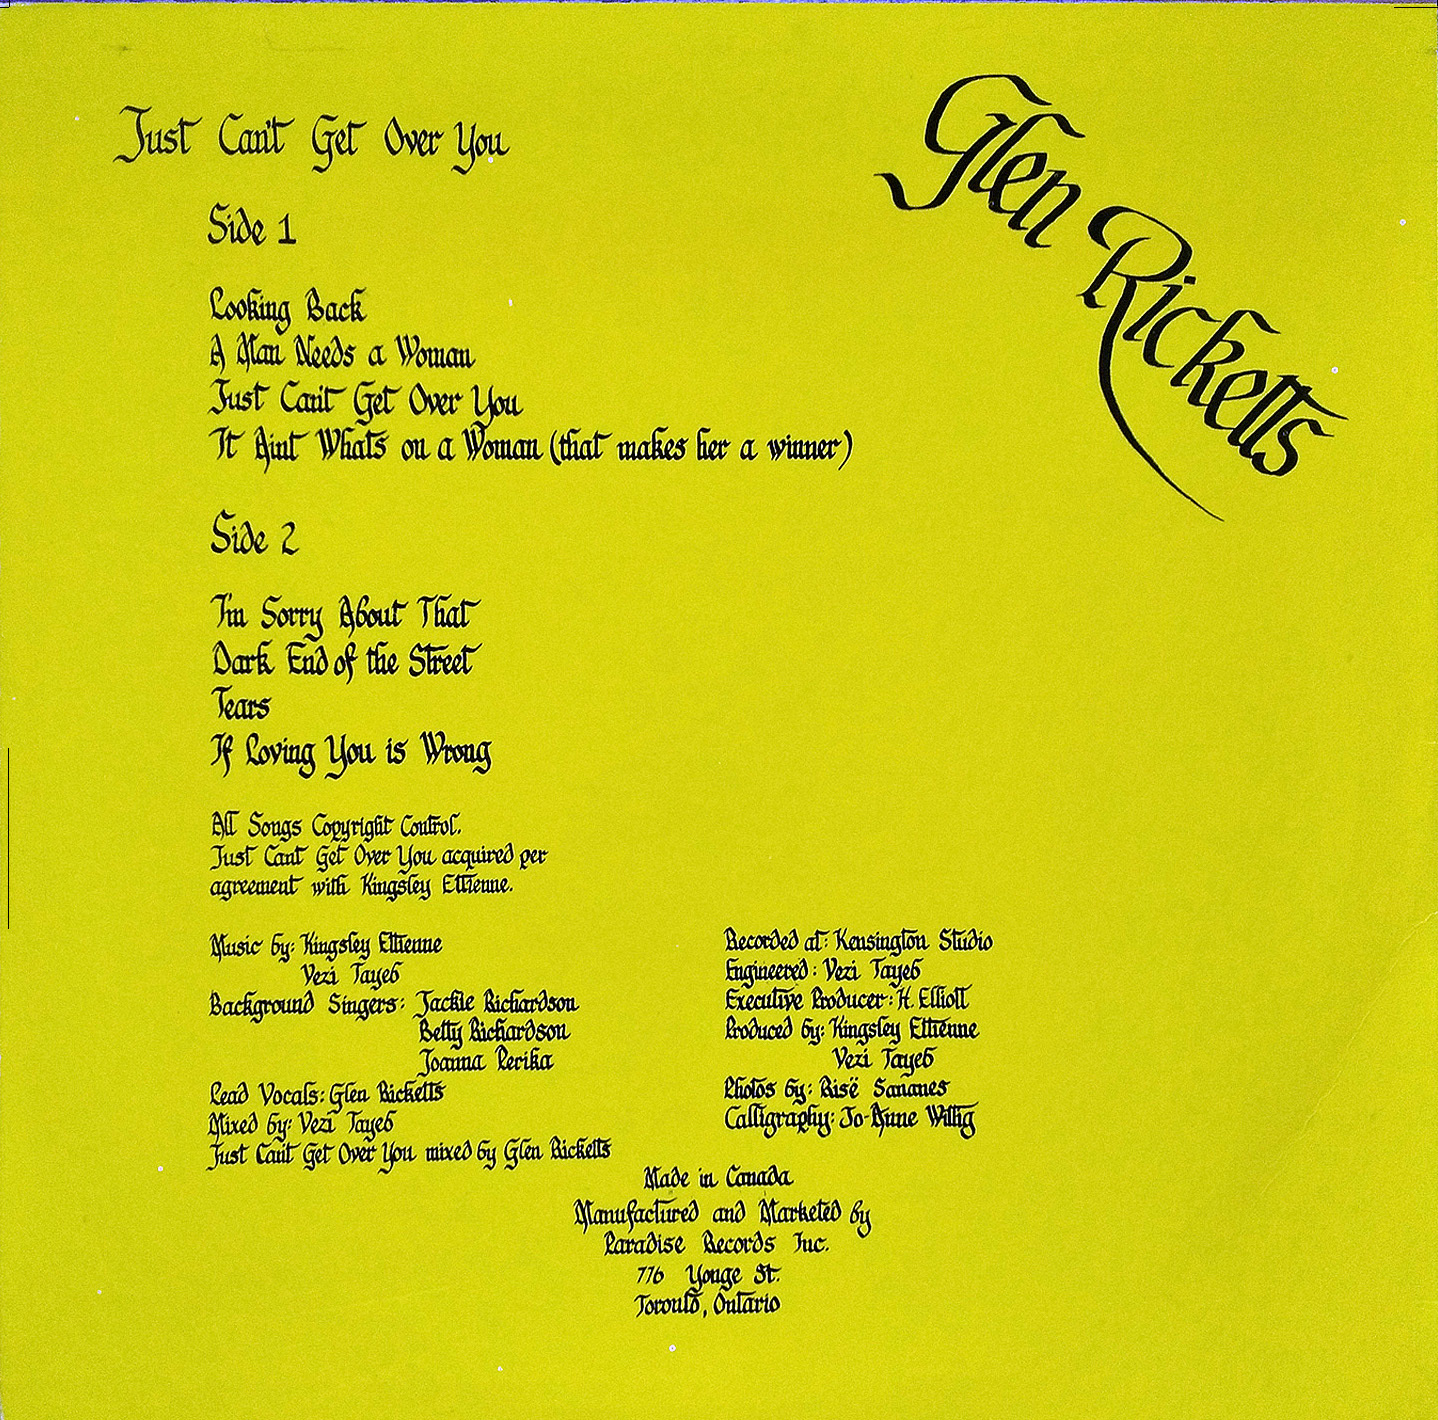 Just Can't Get Over You
Glen Ricketts
Side 1
Looking Back
A Man Needs a Woman
Just Can't Get Over You
It Aint Whats on a Woman (that makes her a winner)
Side 2
I'm Sorry About That
Dark End of the Street
Tears
If Loving You is Wrong
All Songs Copyright Control.
Just Cant Get Over You acquired per
agreement with Kingsley Ettienne.
Music by: Kingsley Ettienne
Vezi Tayeb
Background Singers: Jackie Richardson
Betty Richardson
Joanna Perika
Lead Vocals: Glen Ricketts
Mixed by: Vezi Tayeb
Just Can't Get Over You mixed by Glen Ricketts
Recorded at: Kensington Studio
Engineered: Vezi Tayeb
Executive Producer: H. Elliott
Produced by: Kingsley Ettienne
Vezi Tayeb
Photos by: Risë Sananes
Calligraphy: Jo-Anne Willig
Made in Canada
Manufactured and Marketed by
Paradise Records Inc.
776 Yonge St.
Toronto, Ontario